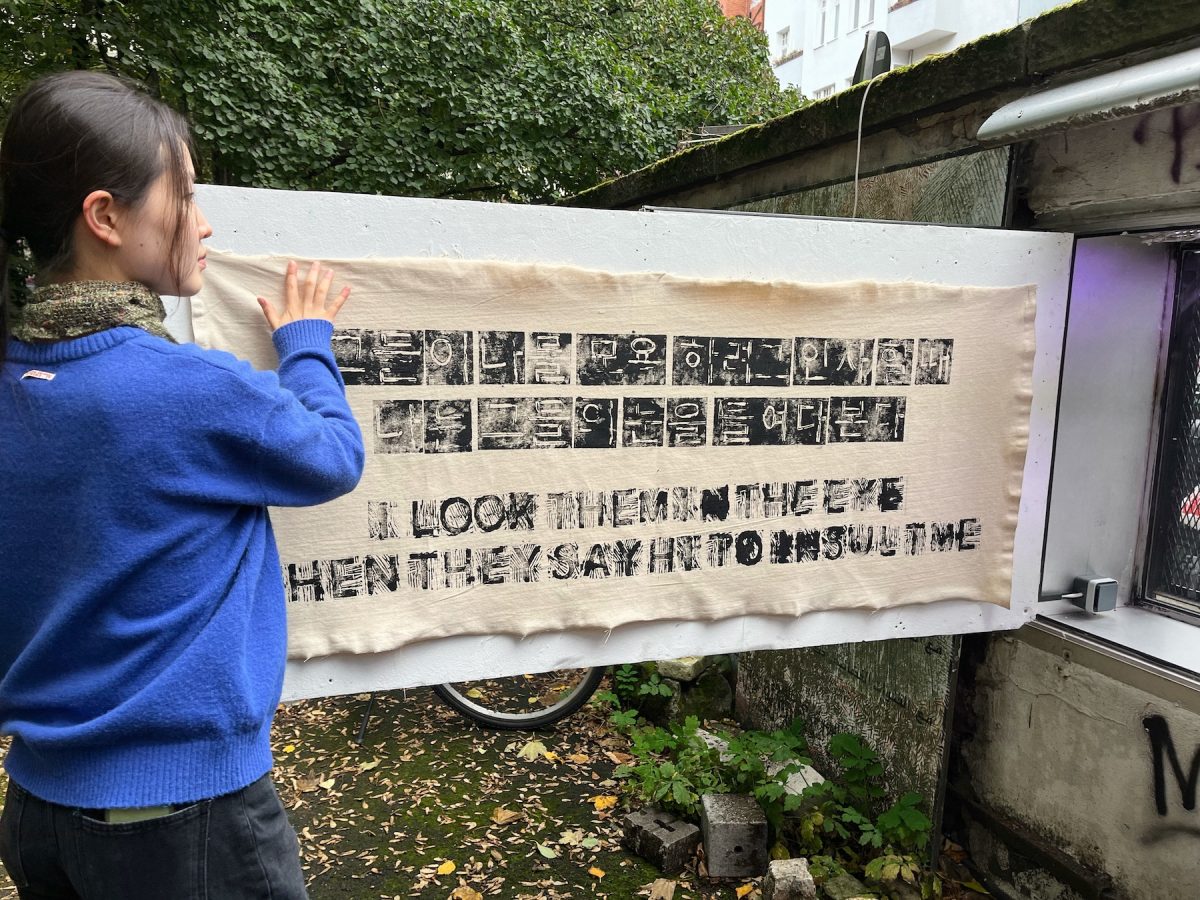 그들이 나를 모욕하려고 인사할 때
나는 그들의 눈을 들여다본다
I LOOK THEM IN THE EYE
HEN THEY SAY HI TO INSULT ME